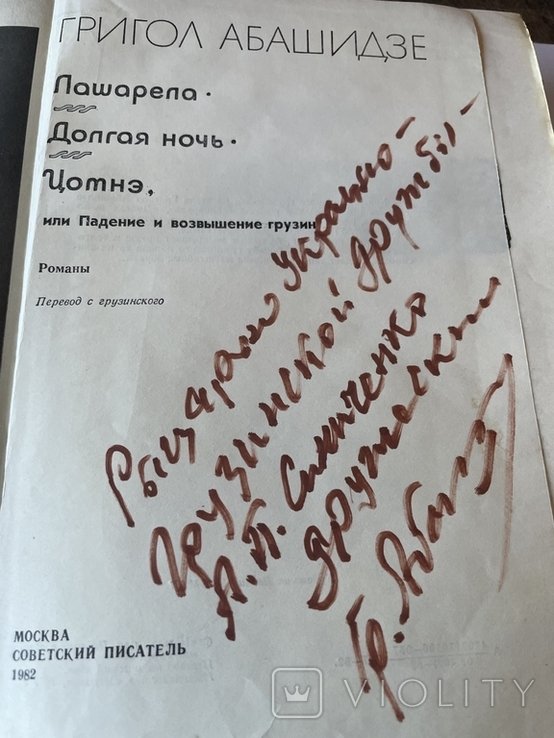 ГРИГОЛ АБАШИДЗЕ
Лашарела •
Долгая ночь •
Цотнэ,
или Падение и возвышение грузин
Романы
Перевод с грузинского
Рыцарю украино-
грузинской дружбы -
А. П. Симченко
дружески
Гр. Абаш
МОСКВА
СОВЕТСКИЙ ПИСАТЕЛЬ
1982
VIOLITY